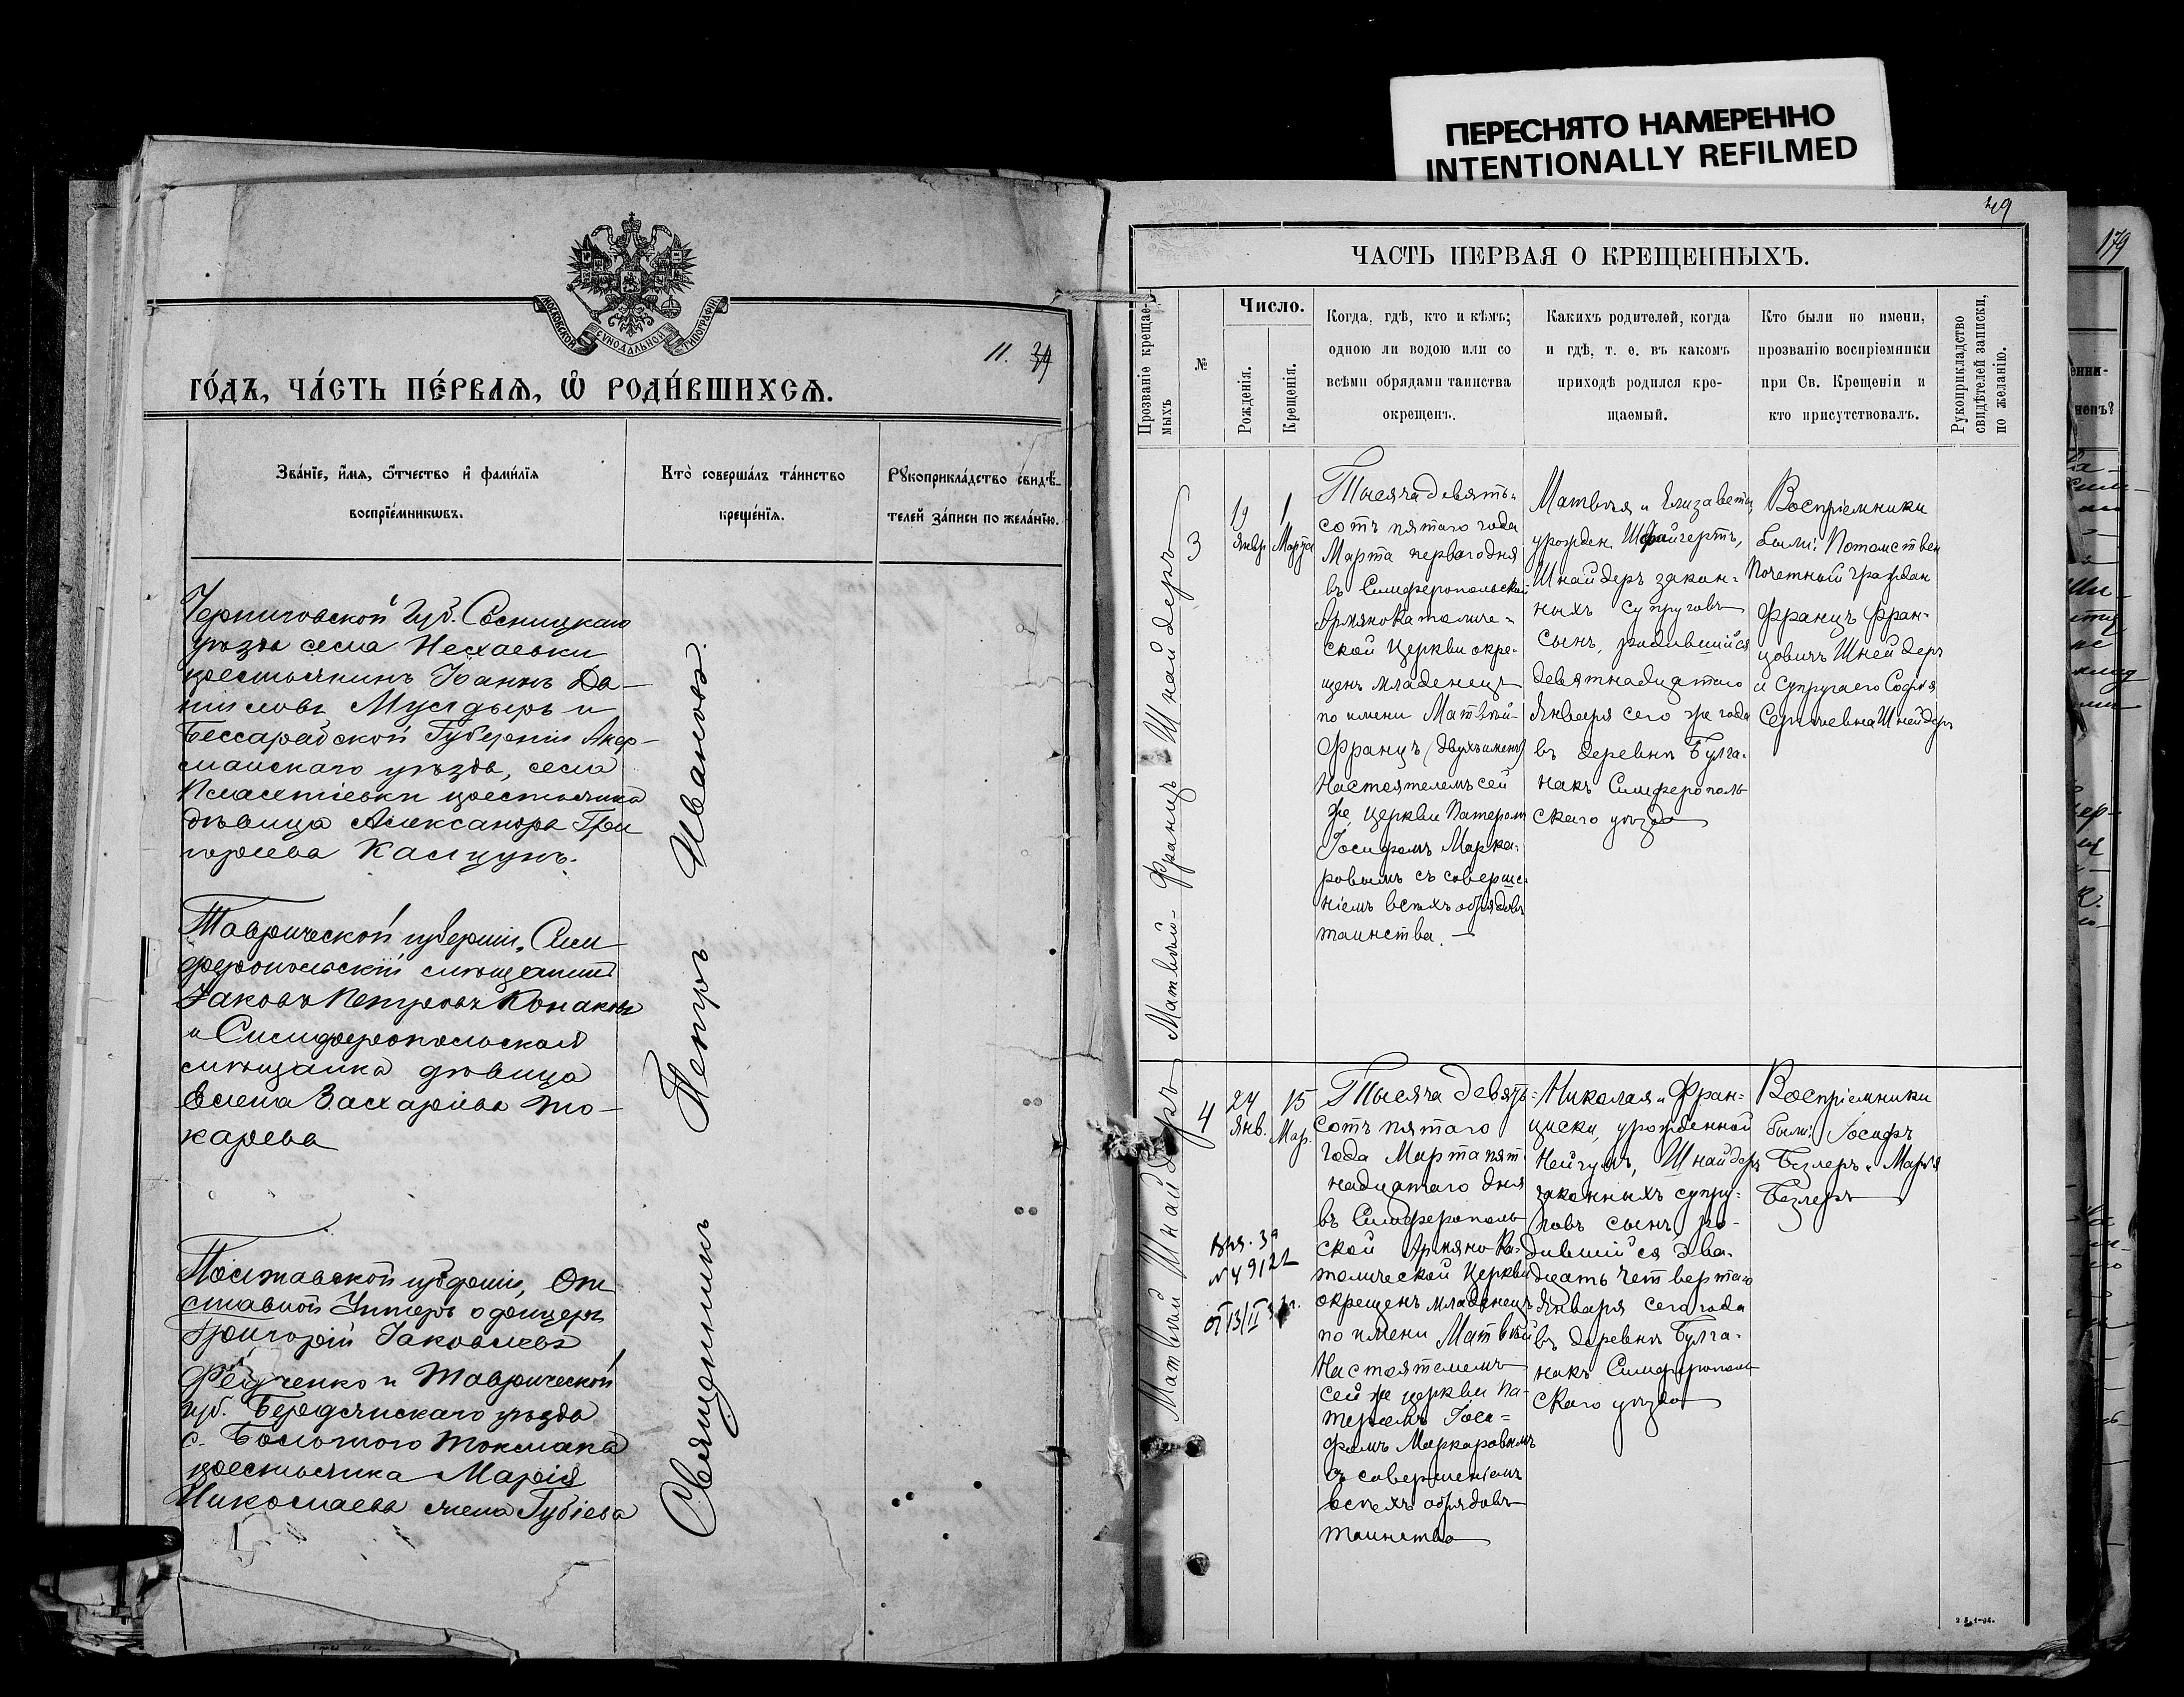 ПЕРЕСНЯТО НАМЕРЕННО
INTENTIONALLY REFILMED
МОСКОВСКОЙ СѴНОДАЛЬНОЙ ТИПОГРАФІИ
11. 39
ГО́ДЪ, ЧА́СТЬ ПЕ́РВАЯ, Ѡ҆ РОДИ́ВШИХСЯ.
Зва́нїе, и҆́мя, ѻ҆́тчество и҆ фами́лїя
воспрїе́мникѡвъ.
Кто̀ соверша́лъ та́инство
креще́нїя.
Рꙋкоприкла́дство свидѣ́-
телей за́писи по жела́нїю.
Черниговской Губ. Сосницкаго
уѣзда села Нехаевки
крестьянинъ Іоаннъ Да-
ниловъ и
Бессарабской Губерніи Акер-
манскаго уѣзда, села
крестьянка
дѣвица Александра Гри
горьева Калцунъ.
Таврической губерніи, Сим
феропольскій мѣщанинъ
Іаковъ Петровъ Конаковъ
и Симферопольская
мѣщанка дѣвица
Елена Захарьева То-
карева
Полтавской губерніи, От
ставной Унтеръ офицеръ
Григорій Іаковлевъ
и Таврической
губ. Бердянскаго уѣзда
с. Большого Токмака
крестьянка Марія
Николаева жена Губіева
Священникъ Петръ Ивановъ.
49
179
ЧАСТЬ ПЕРВАЯ О КРЕЩЕННЫХЪ.
Прозваніе крещае-
мыхъ
№
Число.
Рожденія.
Крещенія.
Когда, гдѣ, кто и кѣмъ;
одною ли водою или со
всѣми обрядами таинства
окрещенъ.
Какихъ родителей, когда
и гдѣ, т. е. въ какомъ
приходѣ родился кре-
щаемый.
Кто были по имени,
прозванію воспріемники
при Св. Крещеніи и
кто присутствовалъ.
Рукоприкладство
свидѣтелей записки,
по желанію.
Матвѣй-Францъ Шнайдеръ
3
19
Янвр
1
Марта
Тысяча девять-
сотъ пятаго года
Марта перваго дня
въ Симферопольской
Армянокатоличе-
ской Церкви окре-
щенъ младенецъ
по имени Матвѣй-
Францъ (двухъименъ)
Настоятелемъ сей
же церкви Патеромъ
Іосифомъ Марка-
ровымъ съ соверше-
ніемъ всѣхъ обрядовъ
таинства. —
Матвѣя и Елизаветы
урожден.
Шнайдеръ закон-
ныхъ супруговъ
сынъ, родившійся
девятнадцатаго
Января сего же года
въ деревнѣ Булга-
накъ Симферополь
скаго уѣзда
Воспріемники
были: Потомствен
Почетный граждан
Францъ Фран-
цовичъ Шнейдеръ
и супруга его Софья
Сергѣевна Шнейдеръ
Матвѣй Шнайдеръ
4
24
Янв.
15
Мар.
№ 49122
Тысяча девять-
сотъ пятаго
года Марта пят-
надцатаго дня
въ Симферополь
ской Армяно-Ка-
толической Церкви
окрещенъ младенецъ
по имени Матвѣй
Настоятелемъ
сей же церкви па-
теремъ Іоси-
фомъ Маркаровымъ
съ совершеніемъ
всѣхъ обрядовъ
таинства
Николая и Фран-
циски, урожденной
Нейгумъ, Шнайдеръ
законныхъ супру-
говъ сынъ, ро-
дившійся два-
дцать четвертаго
Января сего года
въ деревнѣ Булга-
накъ Симферополь
скаго уѣзда
Воспріемники
были: Іосифъ
Безлеръ и Марья
Безлеръ